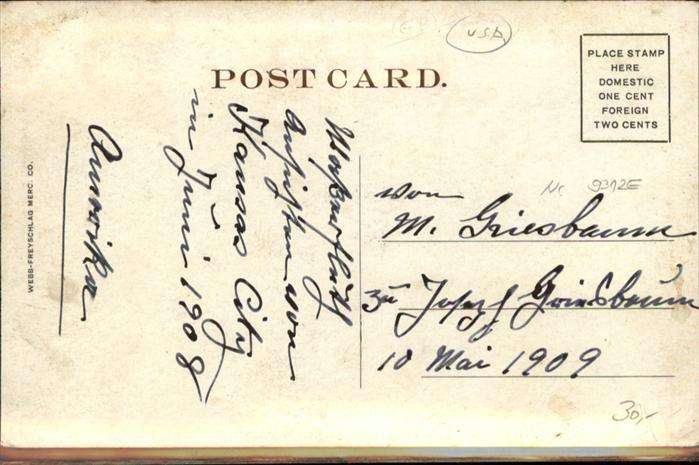 USA
POST CARD.
PLACE STAMP
HERE
DOMESTIC
ONE CENT
FOREIGN
TWO CENTS
Wasserflut
Ansichten von
Kansas City
in Juni 1908
Amerika
WEBB-FREYSCHLAG MERC. CO.
9312E
von
M. Griesbaum
zu Joseph Griesbaum
10 Mai 1909
30,-